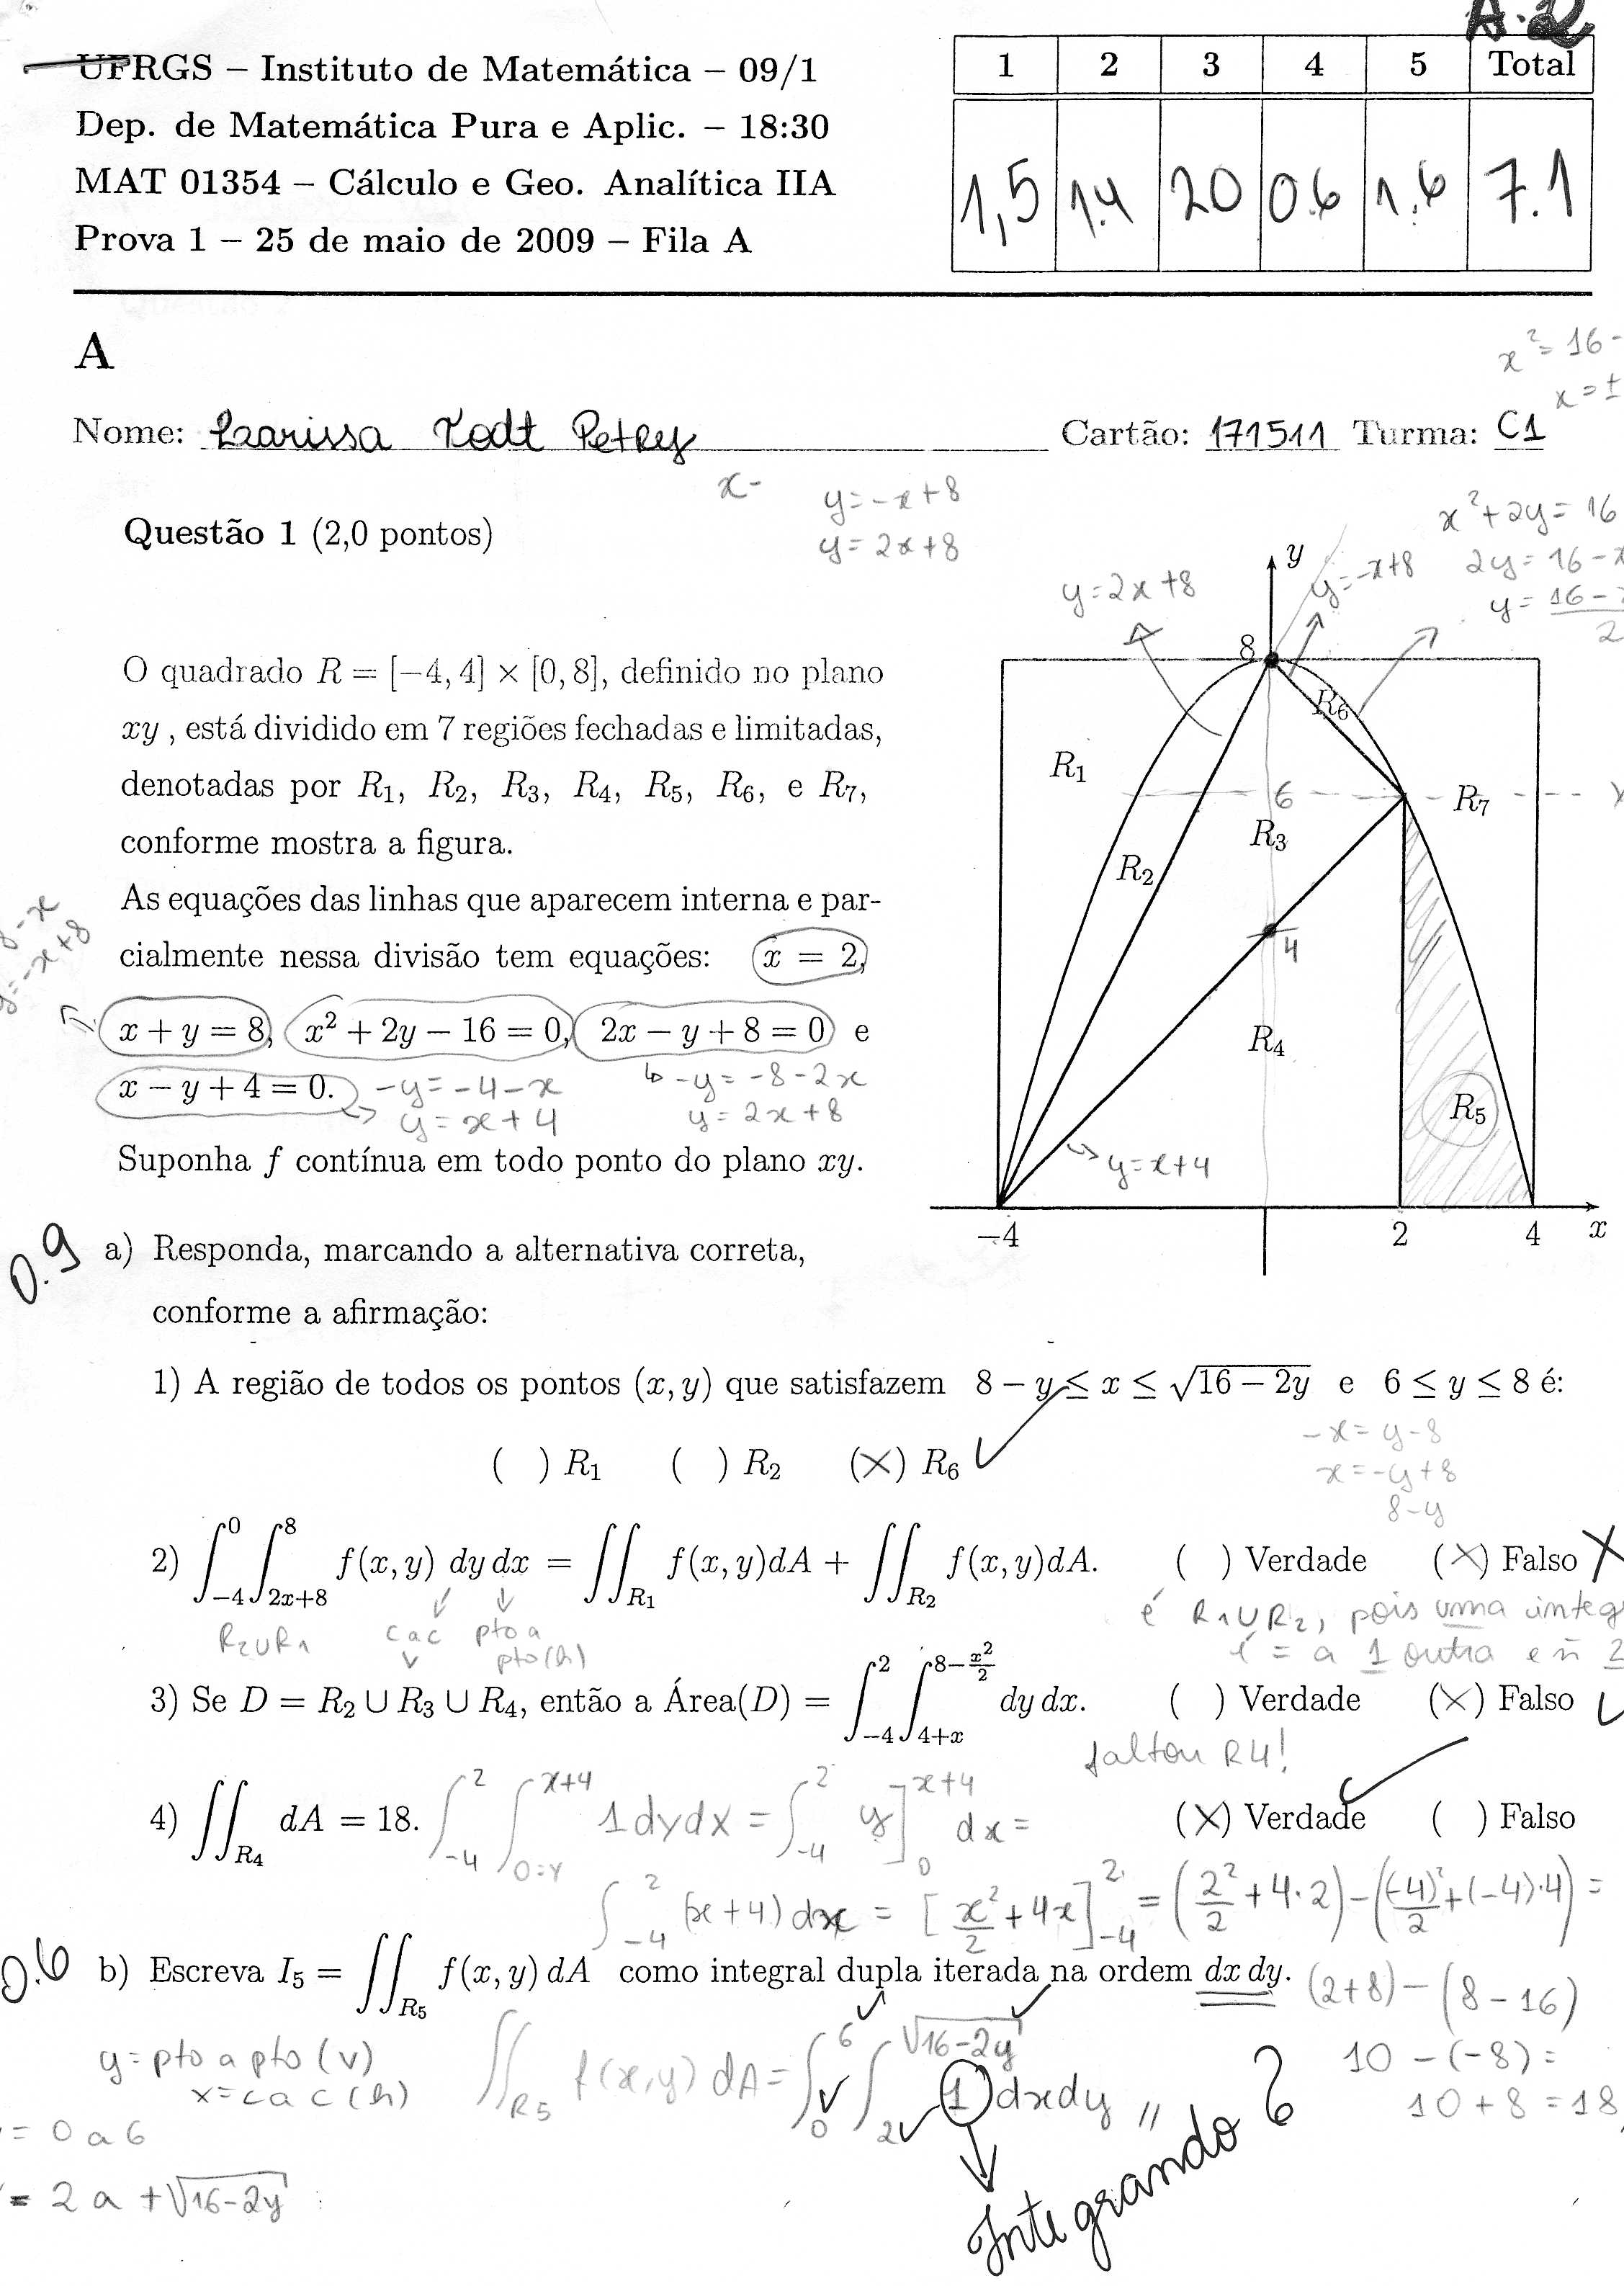 A.2
UFRGS – Instituto de Matemática – 09/1
Dep. de Matemática Pura e Aplic. – 18:30
MAT 01354 – Cálculo e Geo. Analítica IIA
Prova 1 – 25 de maio de 2009 – Fila A
1 2 3 4 5 Total
1,5 1.4 20 0.6 1.6 7.1
A
x² = 16 -
x = ±
Nome: Larissa Todt Petry Cartão: 171511 Turma: C1
x-
y = -x + 8
y = 2x + 8
Questão 1 (2,0 pontos)
x² + 2y = 16
2y = 16 - x
y = 16 -
2
O quadrado R = [−4, 4] × [0, 8], definido no plano
xy , está dividido em 7 regiões fechadas e limitadas,
denotadas por R₁, R₂, R₃, R₄, R₅, R₆, e R₇,
conforme mostra a figura.
As equações das linhas que aparecem interna e par-
cialmente nessa divisão tem equações: x = 2,
x + y = 8, x² + 2y − 16 = 0, 2x − y + 8 = 0 e
x − y + 4 = 0. -y = -4 - x
y = x + 4
-y = -8 - 2x
y = 2x + 8
8 - x
y = -x + 8
Suponha f contínua em todo ponto do plano xy.
y
y = 2x + 8
y = -x + 8
8
R₆
R₁
6
R₇
R₃
R₂
4
R₄
R₅
y = x + 4
−4 2 4 x
0.9 a) Responda, marcando a alternativa correta,
conforme a afirmação:
1) A região de todos os pontos (x, y) que satisfazem 8 − y ≤ x ≤ √(16 − 2y) e 6 ≤ y ≤ 8 é:
-x = y - 8
x = -y + 8
8 - y
( ) R₁ ( ) R₂ (X) R₆ ✓
2) ∫₋₄⁰ ∫₂ₓ₊₈⁸ f(x, y) dy dx = ∬R₁ f(x, y)dA + ∬R₂ f(x, y)dA. ( ) Verdade (X) Falso X
R₂∪R₁
cac
v
pto a
pto(h)
é R₁∪R₂, pois uma integ
é = a 1 outra e ñ 2
3) Se D = R₂ ∪ R₃ ∪ R₄, então a Área(D) = ∫₋₄² ∫₄₊ₓ^(8−x²/2) dy dx. ( ) Verdade (X) Falso ✓
faltou R4!
4) ∬R₄ dA = 18. ∫₋₄² ∫₀₌ᵧ^(x+4) 1 dy dx = ∫₋₄² y]₀^(x+4) dx = (X) Verdade ✓ ( ) Falso
∫₋₄² (x + 4) dx = [x²/2 + 4x]₋₄² = (2²/2 + 4·2) - ((-4)²/2 + (-4)·4) =
0.6 b) Escreva I₅ = ∬R₅ f(x, y) dA como integral dupla iterada na ordem dx dy. (2+8) - (8 - 16)
10 - (-8) =
10 + 8 = 18
y = pto a pto (v)
x = c a c (h)
= 0 a 6
= 2 a +√(16-2y)
∬R5 f(x,y) dA = ∫₀⁶ ∫₂^√(16-2y) 1 dxdy //
Integrando ?